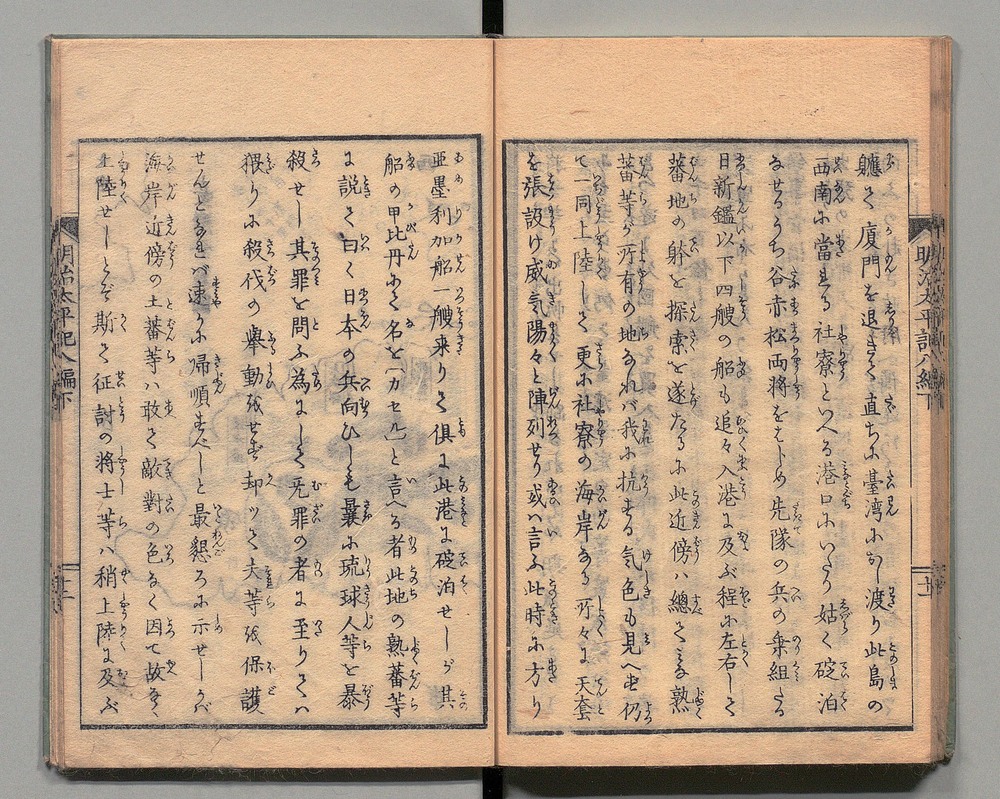 軈て廈門を退きて直ちに臺湾にぞ渡り此島の
西南に當れる社寮といへる港口にいたり姑く碇泊
なせるうち谷赤松両将をはじめ先隊の兵の乗組たる
日新鑑以下四艘の船も追々入港に及ぶ程に左右して
蕃地の躰を探索を遂たるに此近傍ハ總て熟
蕃等が所有の地なれバ我に抗する気色も見へず仍
て一同上陸して更に社寮の海岸なる所々に天套
を張設け威気陽々と陣列せり或ハ言ふ此時に方り
亜墨利加船一艘来りて倶に此港に碇泊せしが其
船の甲比丹にて名を「カセル」と言へる者此地の熟蕃等
に説て曰く日本の兵向ひしも曩に琉球人等を暴
殺せし其罪を問ふ為にして无罪の者に至りてハ
猥りに殺伐の擧動をせず却ッて夫等を保護
せんとなれバ速かに帰順すべしと最懇ろに示せしかバ
海岸近傍の土蕃等ハ敢て敵對の色なく因て故なく
上陸せしとぞ斯て征討の将士等ハ稍上陸に及ぶ
明治太平記八編下
十一
明治太平記八編下
十二